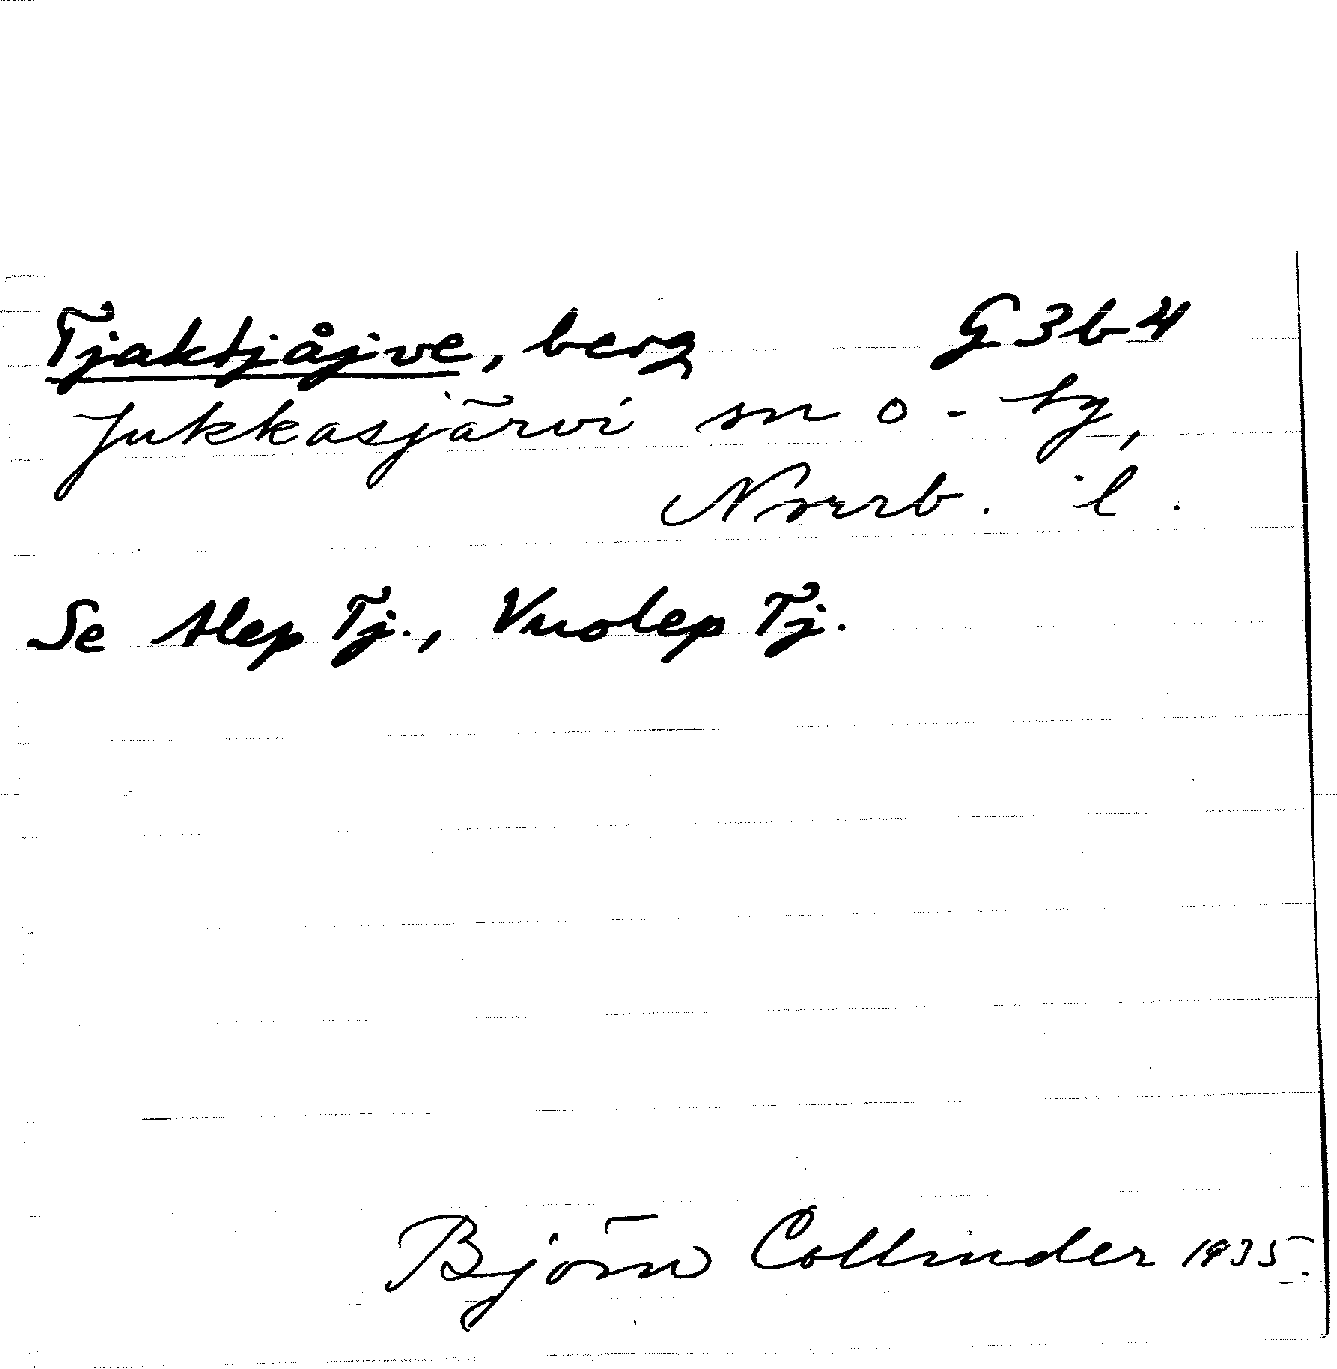 Tjaktjåjve, berg G3b4
Jukkasjärvi sn o - tg,
Norrb. l.
Se Alep Tj., Vuolep Tj.
Björn Collinder 1935.